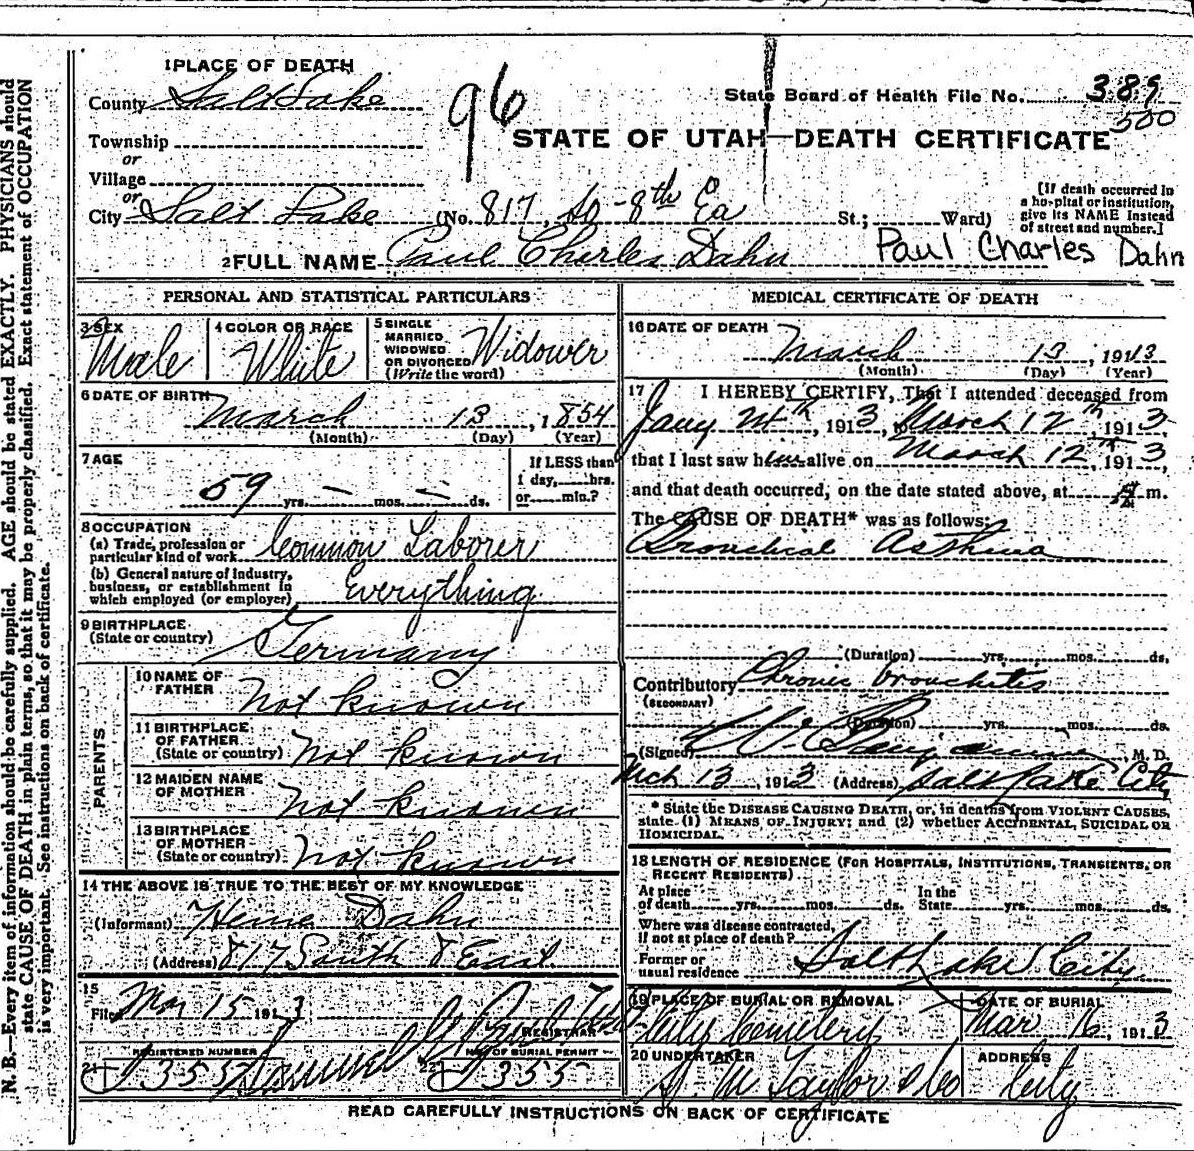 N. B.—Every item of information should be carefully supplied. AGE should be stated EXACTLY. PHYSICIANS should
state CAUSE OF DEATH in plain terms, so that it may be properly classified. Exact statement of OCCUPATION
is very important. See instructions on back of certificate.
1 PLACE OF DEATH
County Salt Lake
96
State Board of Health File No. 389
500
STATE OF UTAH—DEATH CERTIFICATE
Township
or
Village
or
City Salt Lake (No. 817, So - 8th Ea St.; Ward)
[If death occurred in
a hospital or institution,
give its NAME instead
of street and number.]
2 FULL NAME Paul Charles Dahn Paul Charles Dahn
PERSONAL AND STATISTICAL PARTICULARS
3 SEX
Male
4 COLOR OR RACE
White
5 SINGLE
MARRIED
WIDOWED
OR DIVORCED
(Write the word)
Widower
6 DATE OF BIRTH
March 13, 1854
(Month) (Day) (Year)
7 AGE
59 yrs. — mos. — ds.
If LESS than
1 day, hrs.
or min.?
8 OCCUPATION
(a) Trade, profession or
particular kind of work Common Laborer
(b) General nature of industry,
business, or establishment in
which employed (or employer) Everything
9 BIRTHPLACE
(State or country) Germany
PARENTS
10 NAME OF
FATHER Not known
11 BIRTHPLACE
OF FATHER
(State or country) Not known
12 MAIDEN NAME
OF MOTHER Not known
13 BIRTHPLACE
OF MOTHER
(State or country) Not known
14 THE ABOVE IS TRUE TO THE BEST OF MY KNOWLEDGE
(Informant) Dahn
(Address) 817 South 8 East
15
Filed Mar 15 1913
REGISTRAR
21 REGISTERED NUMBER
J355
22 NO. OF BURIAL PERMIT
J355
MEDICAL CERTIFICATE OF DEATH
16 DATE OF DEATH
March 13, 1913
(Month) (Day) (Year)
17 I HEREBY CERTIFY, That I attended deceased from
Jany, 1913, to March 12th, 1913,
that I last saw him alive on March 12th, 1913,
and that death occurred, on the date stated above, at m.
The CAUSE OF DEATH* was as follows:
Bronchial Asthma
(Duration) yrs. mos. ds.
Contributory Chronic bronchitis
(SECONDARY)
(Duration) yrs. mos. ds.
(Signed) M. D.
Mch 13, 1913 (Address) Salt Lake City
* State the DISEASE CAUSING DEATH, or, in deaths from VIOLENT CAUSES,
state (1) MEANS OF INJURY; and (2) whether ACCIDENTAL, SUICIDAL OR
HOMICIDAL.
18 LENGTH OF RESIDENCE (FOR HOSPITALS, INSTITUTIONS, TRANSIENTS, OR
RECENT RESIDENTS)
At place
of death yrs. mos. ds.
In the
State yrs. mos. ds.
Where was disease contracted,
if not at place of death?
Former or
usual residence Salt Lake City
19 PLACE OF BURIAL OR REMOVAL
City Cemetery
DATE OF BURIAL
Mar 16, 1913
20 UNDERTAKER
S. M. Taylor & Co
ADDRESS
City
READ CAREFULLY INSTRUCTIONS ON BACK OF CERTIFICATE